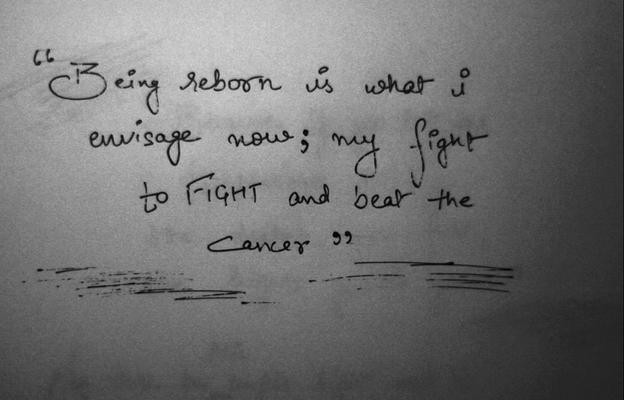 “Being reborn is what i
envisage now; my fight
to FIGHT and beat the
Cancer”